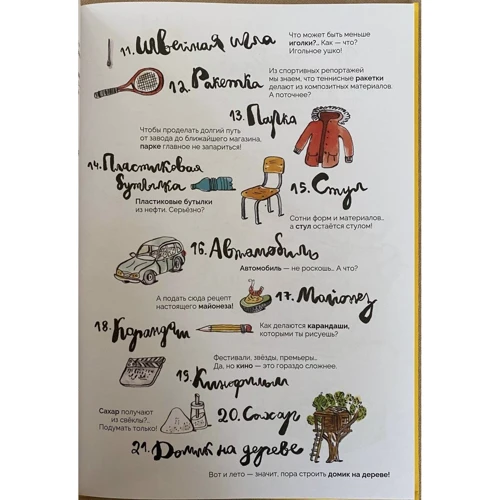 11. Швейная игла
Что может быть меньше
иголки?.. Как — что?
Игольное ушко!
12. Ракетка
Из спортивных репортажей
мы знаем, что теннисные ракетки
делают из композитных материалов.
А поточнее?
13. Парка
Чтобы проделать долгий путь
от завода до ближайшего магазина,
парке главное не запариться!
14. Пластиковая
бутылка
Пластиковые бутылки
из нефти. Серьёзно?
15. Стул
Сотни форм и материалов...
а стул остаётся стулом!
16. Автомобиль
Автомобиль — не роскошь... А что?
17. Майонез
А подать сюда рецепт
настоящего майонеза!
18. Карандаш
Как делаются карандаши,
которыми ты рисуешь?
Фестивали, звёзды, премьеры...
Да, но кино — это гораздо сложнее.
19. Кинофильм
Сахар получают
из свёклы?..
Подумать только!
20. Сахар
21. Домик на дереве
Вот и лето — значит, пора строить домик на дереве!